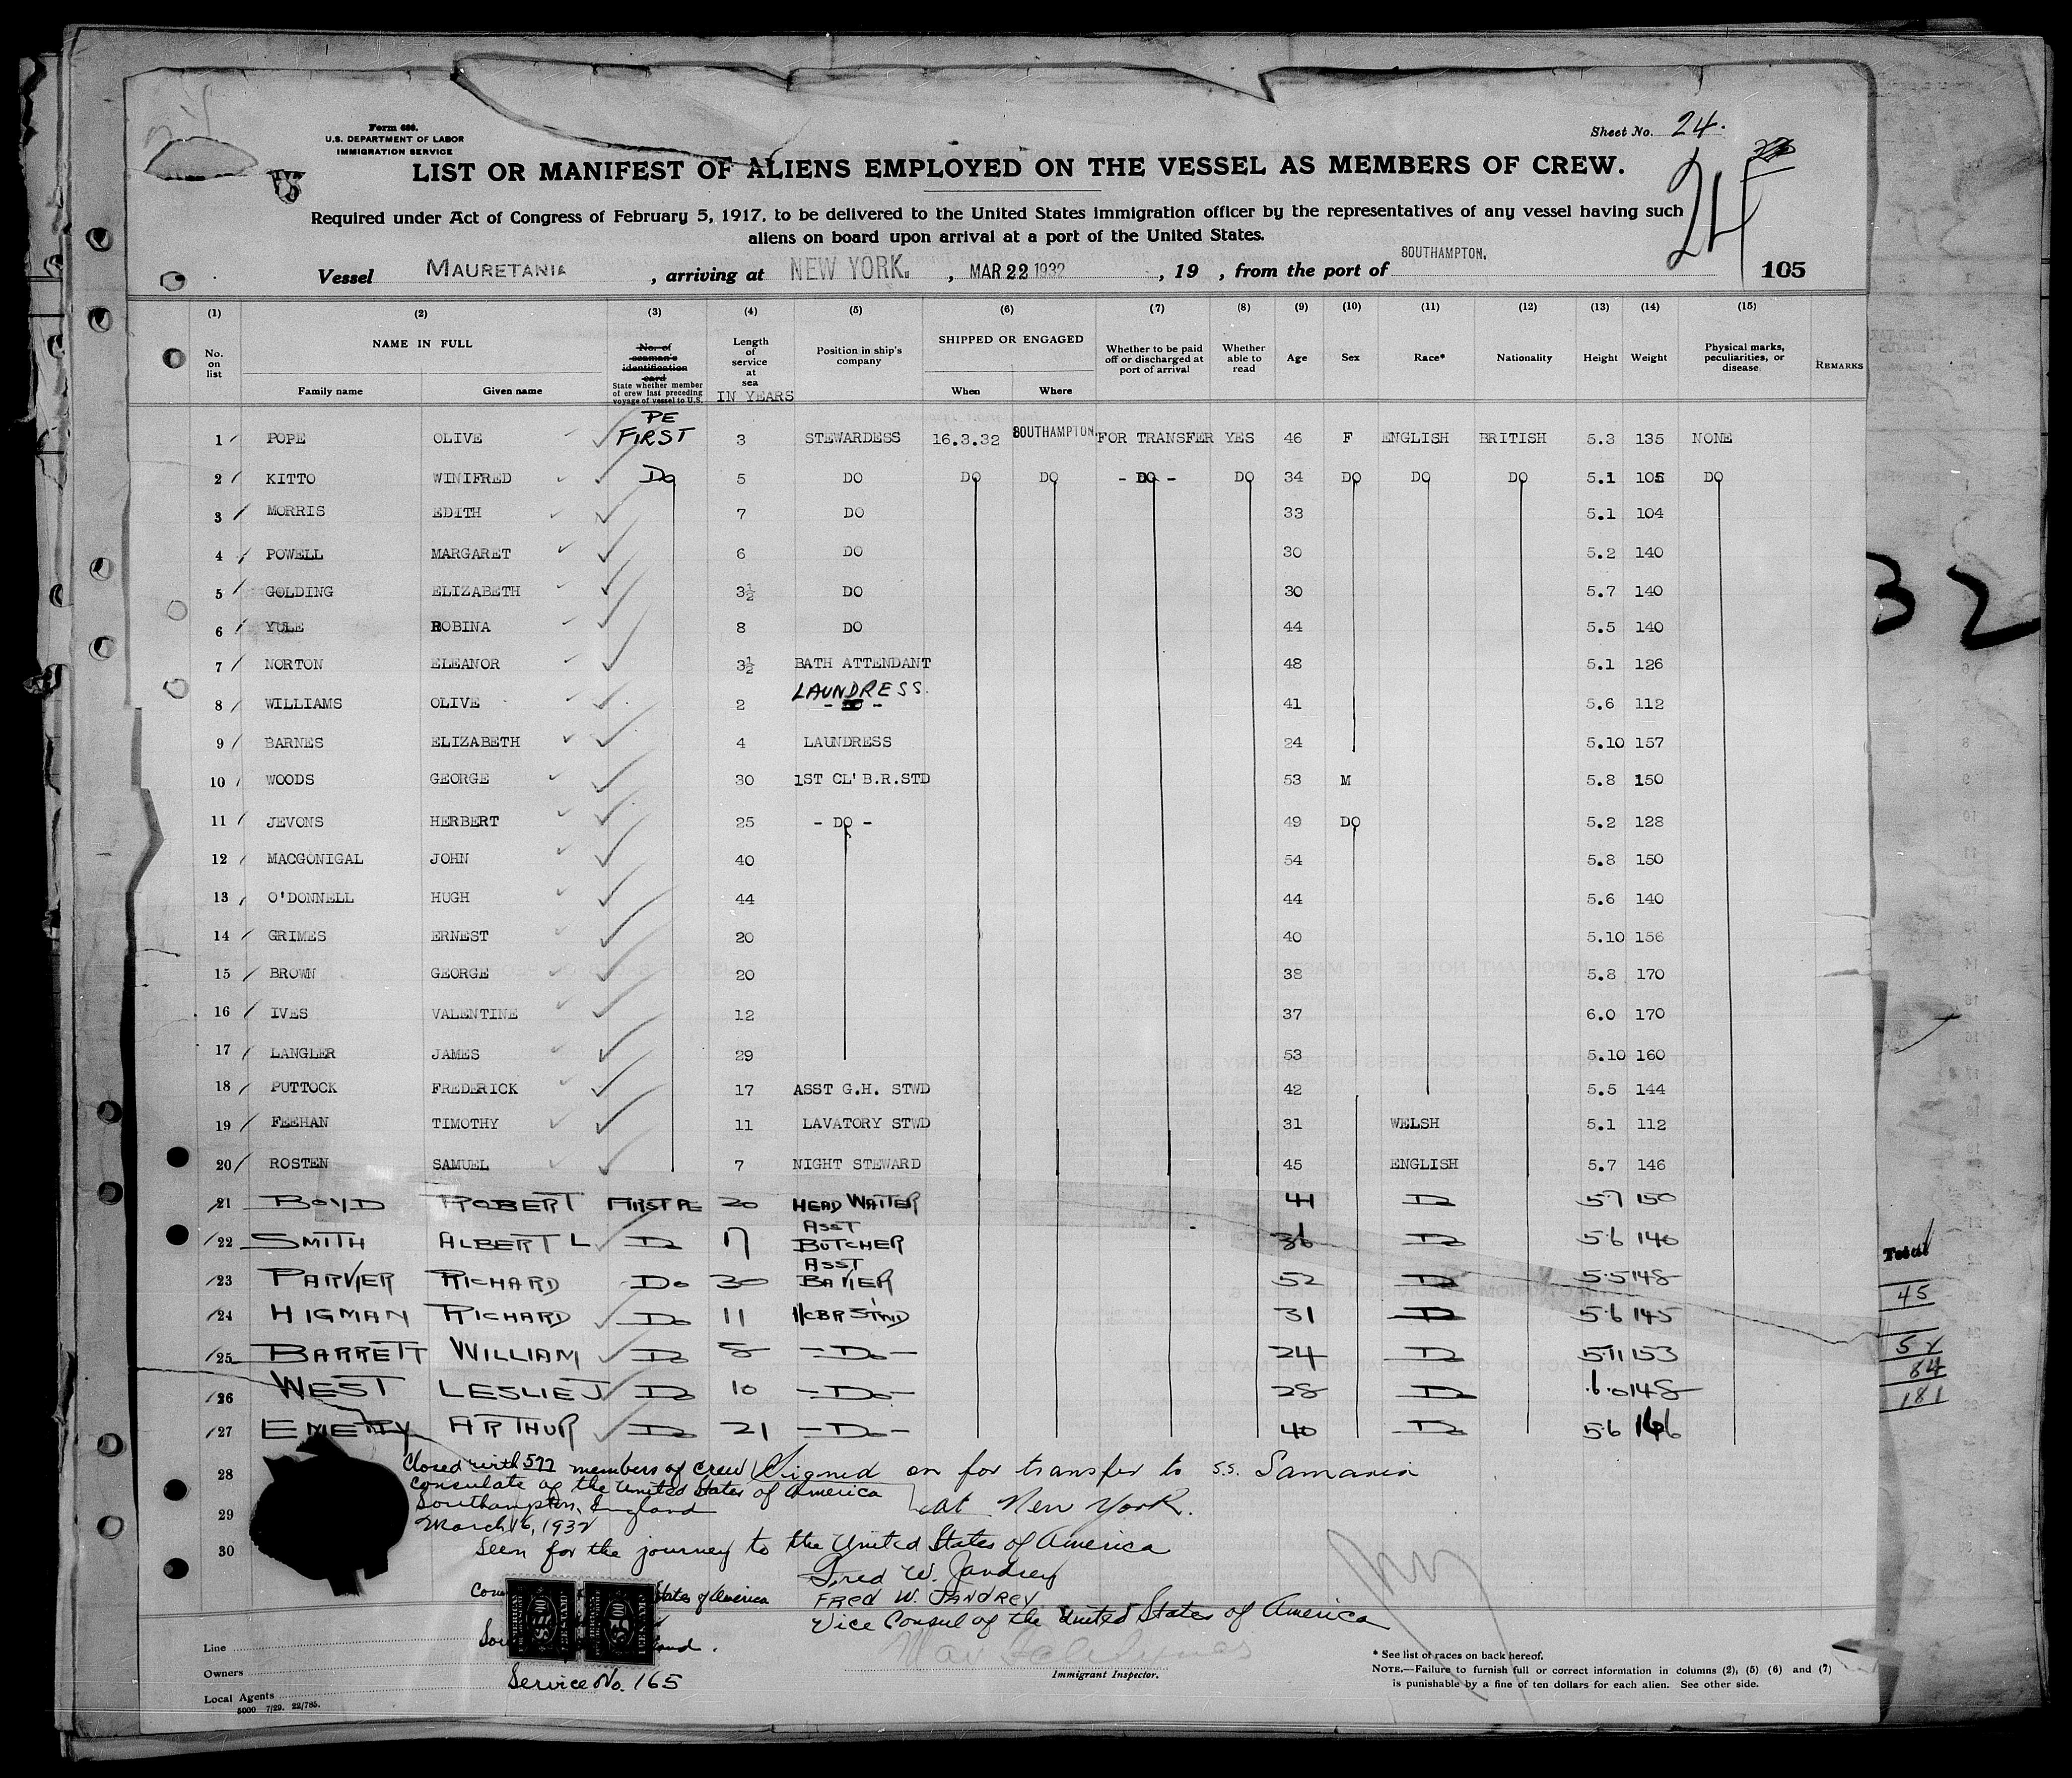 Sheet No. 24.
Form 680.
U.S. DEPARTMENT OF LABOR
IMMIGRATION SERVICE
LIST OR MANIFEST OF ALIENS EMPLOYED ON THE VESSEL AS MEMBERS OF CREW.
24
Required under Act of Congress of February 5, 1917, to be delivered to the United States immigration officer by the representatives of any vessel having such
aliens on board upon arrival at a port of the United States.
Vessel MAURETANIA, arriving at NEW YORK., MAR 22 1932, 19 , from the port of SOUTHAMPTON. 105
(1) (2) (3) (4) (5) (6) (7) (8) (9) (10) (11) (12) (13) (14) (15)
No. on list NAME IN FULL Family name Given name No. of seaman's identification card State whether member of crew last preceding voyage of vessel to U.S. Length of service at sea IN YEARS Position in ship's company SHIPPED OR ENGAGED When Where Whether to be paid off or discharged at port of arrival Whether able to read Age Sex Race* Nationality Height Weight Physical marks, peculiarities, or disease REMARKS
1 POPE OLIVE PE FIRST 3 STEWARDESS 16.3.32 SOUTHAMPTON. FOR TRANSFER YES 46 F ENGLISH BRITISH 5.3 135 NONE
2 KITTO WINIFRED Do 5 DO DO DO - DO - DO 34 DO DO DO 5.1 105 DO
3 MORRIS EDITH 7 DO 33 5.1 104
4 POWELL MARGARET 6 DO 30 5.2 140
5 GOLDING ELIZABETH 3½ DO 30 5.7 140
6 YULE ROBINA 8 DO 44 5.5 140
7 NORTON ELEANOR 3½ BATH ATTENDANT 48 5.1 126
8 WILLIAMS OLIVE 2 LAUNDRESS. - DO - 41 5.6 112
9 BARNES ELIZABETH 4 LAUNDRESS 24 5.10 157
10 WOODS GEORGE 30 1ST CL' B.R.STD 53 M 5.8 150
11 JEVONS HERBERT 25 - DO - 49 DO 5.2 128
12 MACGONIGAL JOHN 40 54 5.8 150
13 O'DONNELL HUGH 44 44 5.6 140
14 GRIMES ERNEST 20 40 5.10 156
15 BROWN GEORGE 20 38 5.8 170
16 IVES VALENTINE 12 37 6.0 170
17 LANGLER JAMES 29 53 5.10 160
18 PUTTOCK FREDERICK 17 ASST G.H. STWD 42 5.5 144
19 FEEHAN TIMOTHY 11 LAVATORY STWD 31 WELSH 5.1 112
20 ROSTEN SAMUEL 7 NIGHT STEWARD 45 ENGLISH 5.7 146
21 BOYD ROBERT FIRST PE 20 HEAD WAITER 41 Do 5.7 150
22 SMITH ALBERT L Do 17 ASST BUTCHER 36 Do 5.6 140
23 PARKER RICHARD Do 30 ASST BAKER 52 Do 5.5 148
24 HIGMAN RICHARD Do 11 1/CBR STWD 31 Do 5.6 145
25 BARRETT WILLIAM Do 8 - Do - 24 Do 5.11 153
26 WEST LESLIE J Do 10 - Do - 28 Do 6.0 148
27 EMERY ARTHUR Do 21 - Do - 40 Do 5.6 146
28
29
30
Closed with 577 members of crew
Consulate of the United States of America
Southampton, England
March 16, 1932
Signed on for transfer to S.S. Samaria
at New York.
Seen for the journey to the United States of America
Fred W. Jandrey
FRED W. JANDREY
Vice Consul of the United States of America
States of America
Service No. 165
Line
Owners
Local Agents
5000 7/29. 22/785.
Immigrant Inspector.
* See list of races on back hereof.
NOTE.—Failure to furnish full or correct information in columns (2), (5) (6) and (7)
is punishable by a fine of ten dollars for each alien. See other side.
32
Total
45
84
181